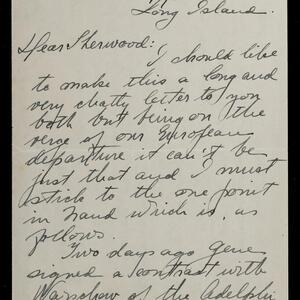 Long Island.
Dear Sherwood:
I should like
to make this a long and
very chatty letter to you
both but being on the
verge of our European
departure it can't be
just that and I must
stick to the one point
in hand which is, as
follows.
Two days ago Gene
signed a contract with
Warshow of the Adelphi